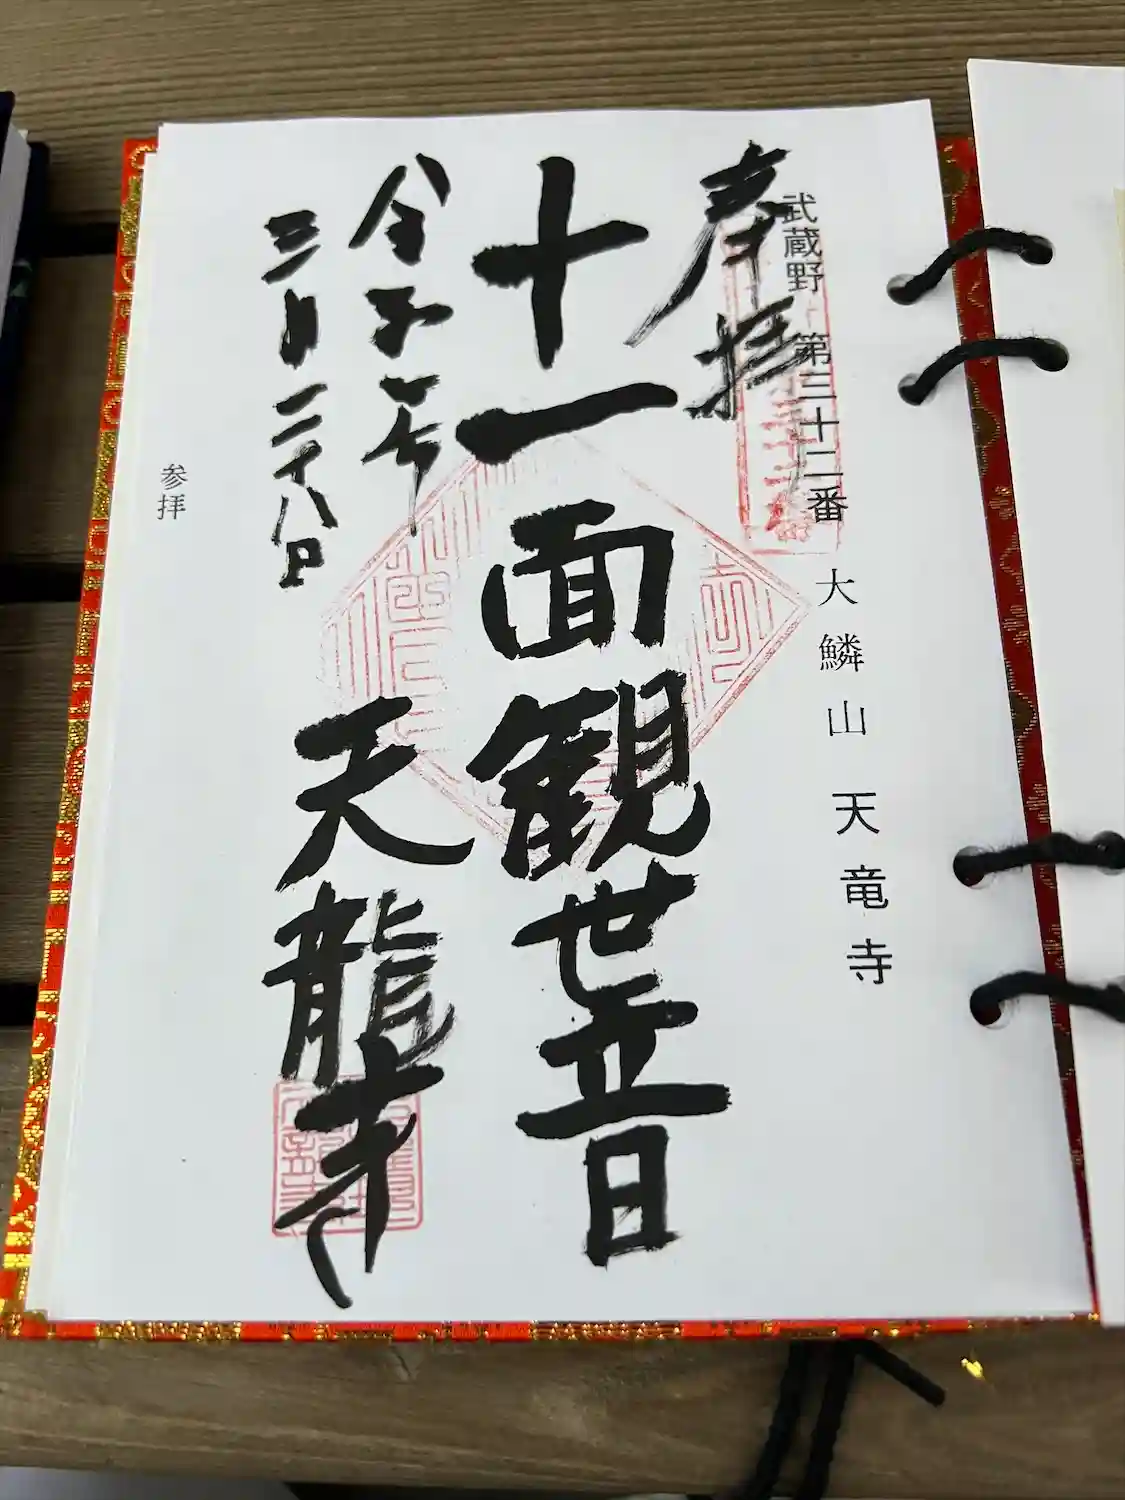 武蔵野 第三十二番 大鱗山 天竜寺
奉拝
十一面観世音
令和年
天龍寺
三月二十八日
参拝